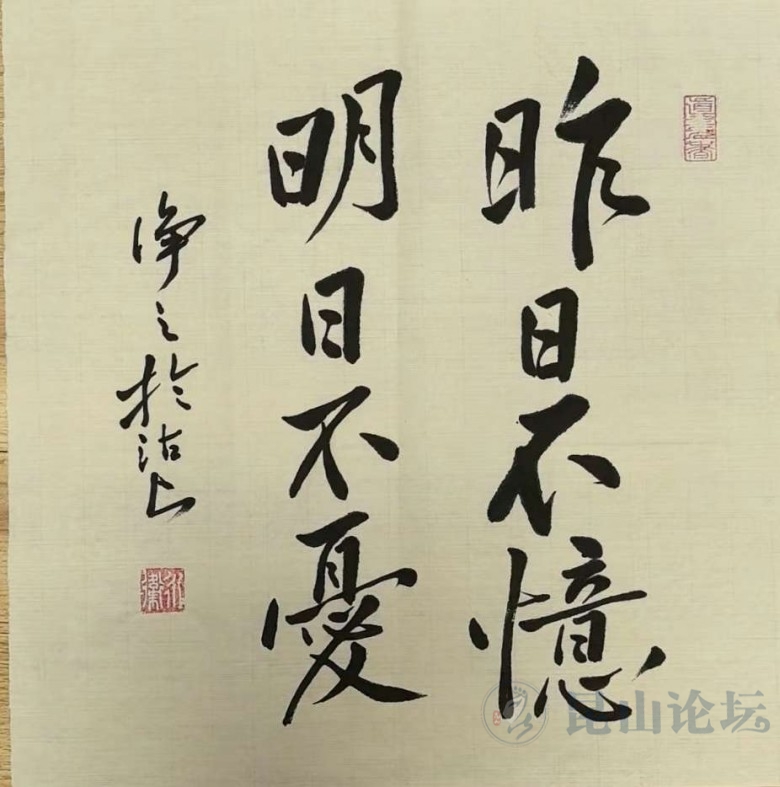 昨日不憶
明日不憂
净之於沽上
昆山论坛